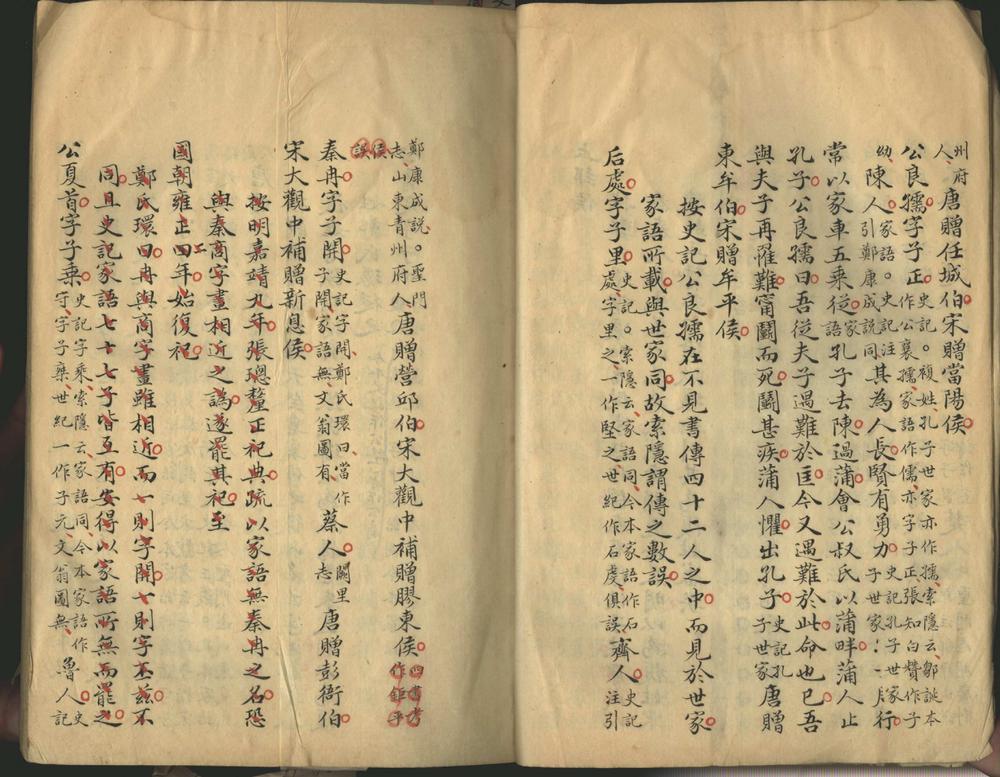 州府人唐贈任城伯宋贈當陽侯
公良孺字子正史記。複姓孔子世家亦作孺、索隱云鄒誕本作公襄孺、家語作儒亦字子正張知白贊作子幼、陳人家語。史記注引鄭康成說同其為人長賢有勇力史記孔子世家行
常以家車五乘從家語孔子去陳過蒲會公叔氏以蒲畔蒲人止
孔子公良孺曰吾從夫子遇難於匡今又遇難於此命也已吾
與夫子再罹難甯鬭而死鬭甚疾蒲人懼出孔子史記孔子世家唐贈
東牟伯宋贈牟平侯
按史記公良孺在不見書傳四十二人之中而見於世家
家語所載與世家同故索隱謂傳之數誤
后處字子里史記。索隱云、家語同、今本家語作石處字里之、一作堅之世紀作石虔俱誤、齊人史記注引
鄭康成說。聖門志、山東青州府人唐贈營邱伯宋大觀中補贈膠東侯四書考作鉅平侯誤
秦冉字子開史記字開、鄭氏環曰當作子開家語無、文翁圖有、蔡人闕里志唐贈彭衙伯
宋大觀中補贈新息侯
按明嘉靖九年張璁釐正祀典疏以家語無秦冉之名恐
與秦商字畫相近之譌遂罷其祀至
國朝雍正二年始復祀
鄭氏環曰冉與商字畫雖相近而一則字開一則字丕茲不
同且史記家語七十七子皆互有安得以家語所無而罷之
公夏首字子乘史記字乘、索隱云家語同、今本家語作守、字子乘、世紀一作子元文翁圖無、魯人史記